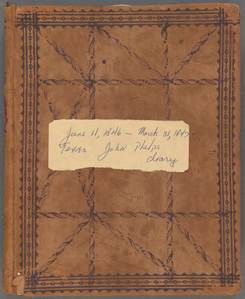 June 11, 1846 — March 31, 1847
Texas John Phelps
diary